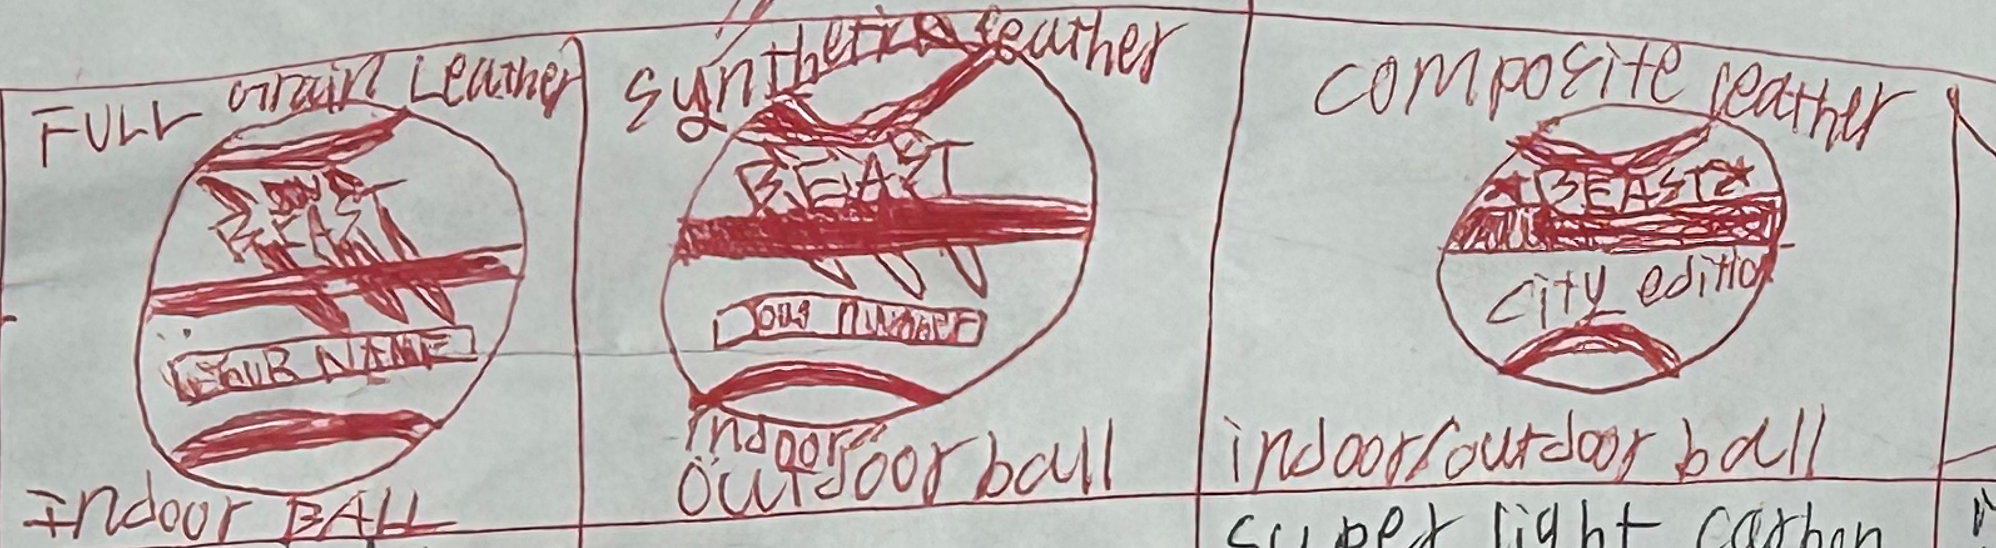 FULL Grain Leather
BEAST
YOUR NAME
Indoor BALL
Synthetic leather
BEAST
your number
indoor/
outdoor ball
composite leather
BEAST
city editio
indoor/outdoor ball
super light carbon